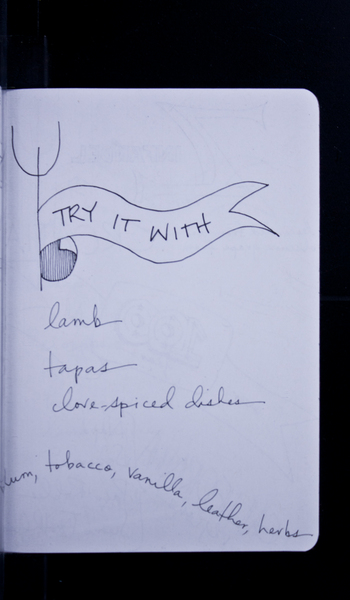 TRY IT WITH
lamb
tapas
clove-spiced dishes
tobacco, vanilla, leather, herbs